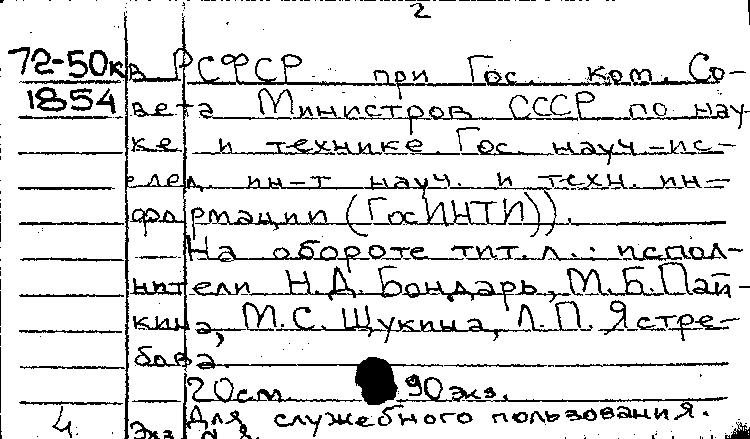 2
72-50кв РСФСР при Гос. ком. Со-
1854 вета Министров СССР по нау-
ке и технике. Гос. науч.-ис-
след. ин-т науч. и техн. ин-
формации (ГосИНТИ)).
На обороте тит. л.: испол-
нители Н.Д. Бондарь, М.Б. Пай-
кина, М.С. Щукина, Л.П. Ястре-
бова.
20см. 90экз.
4 Для служебного пользования.
Экз.